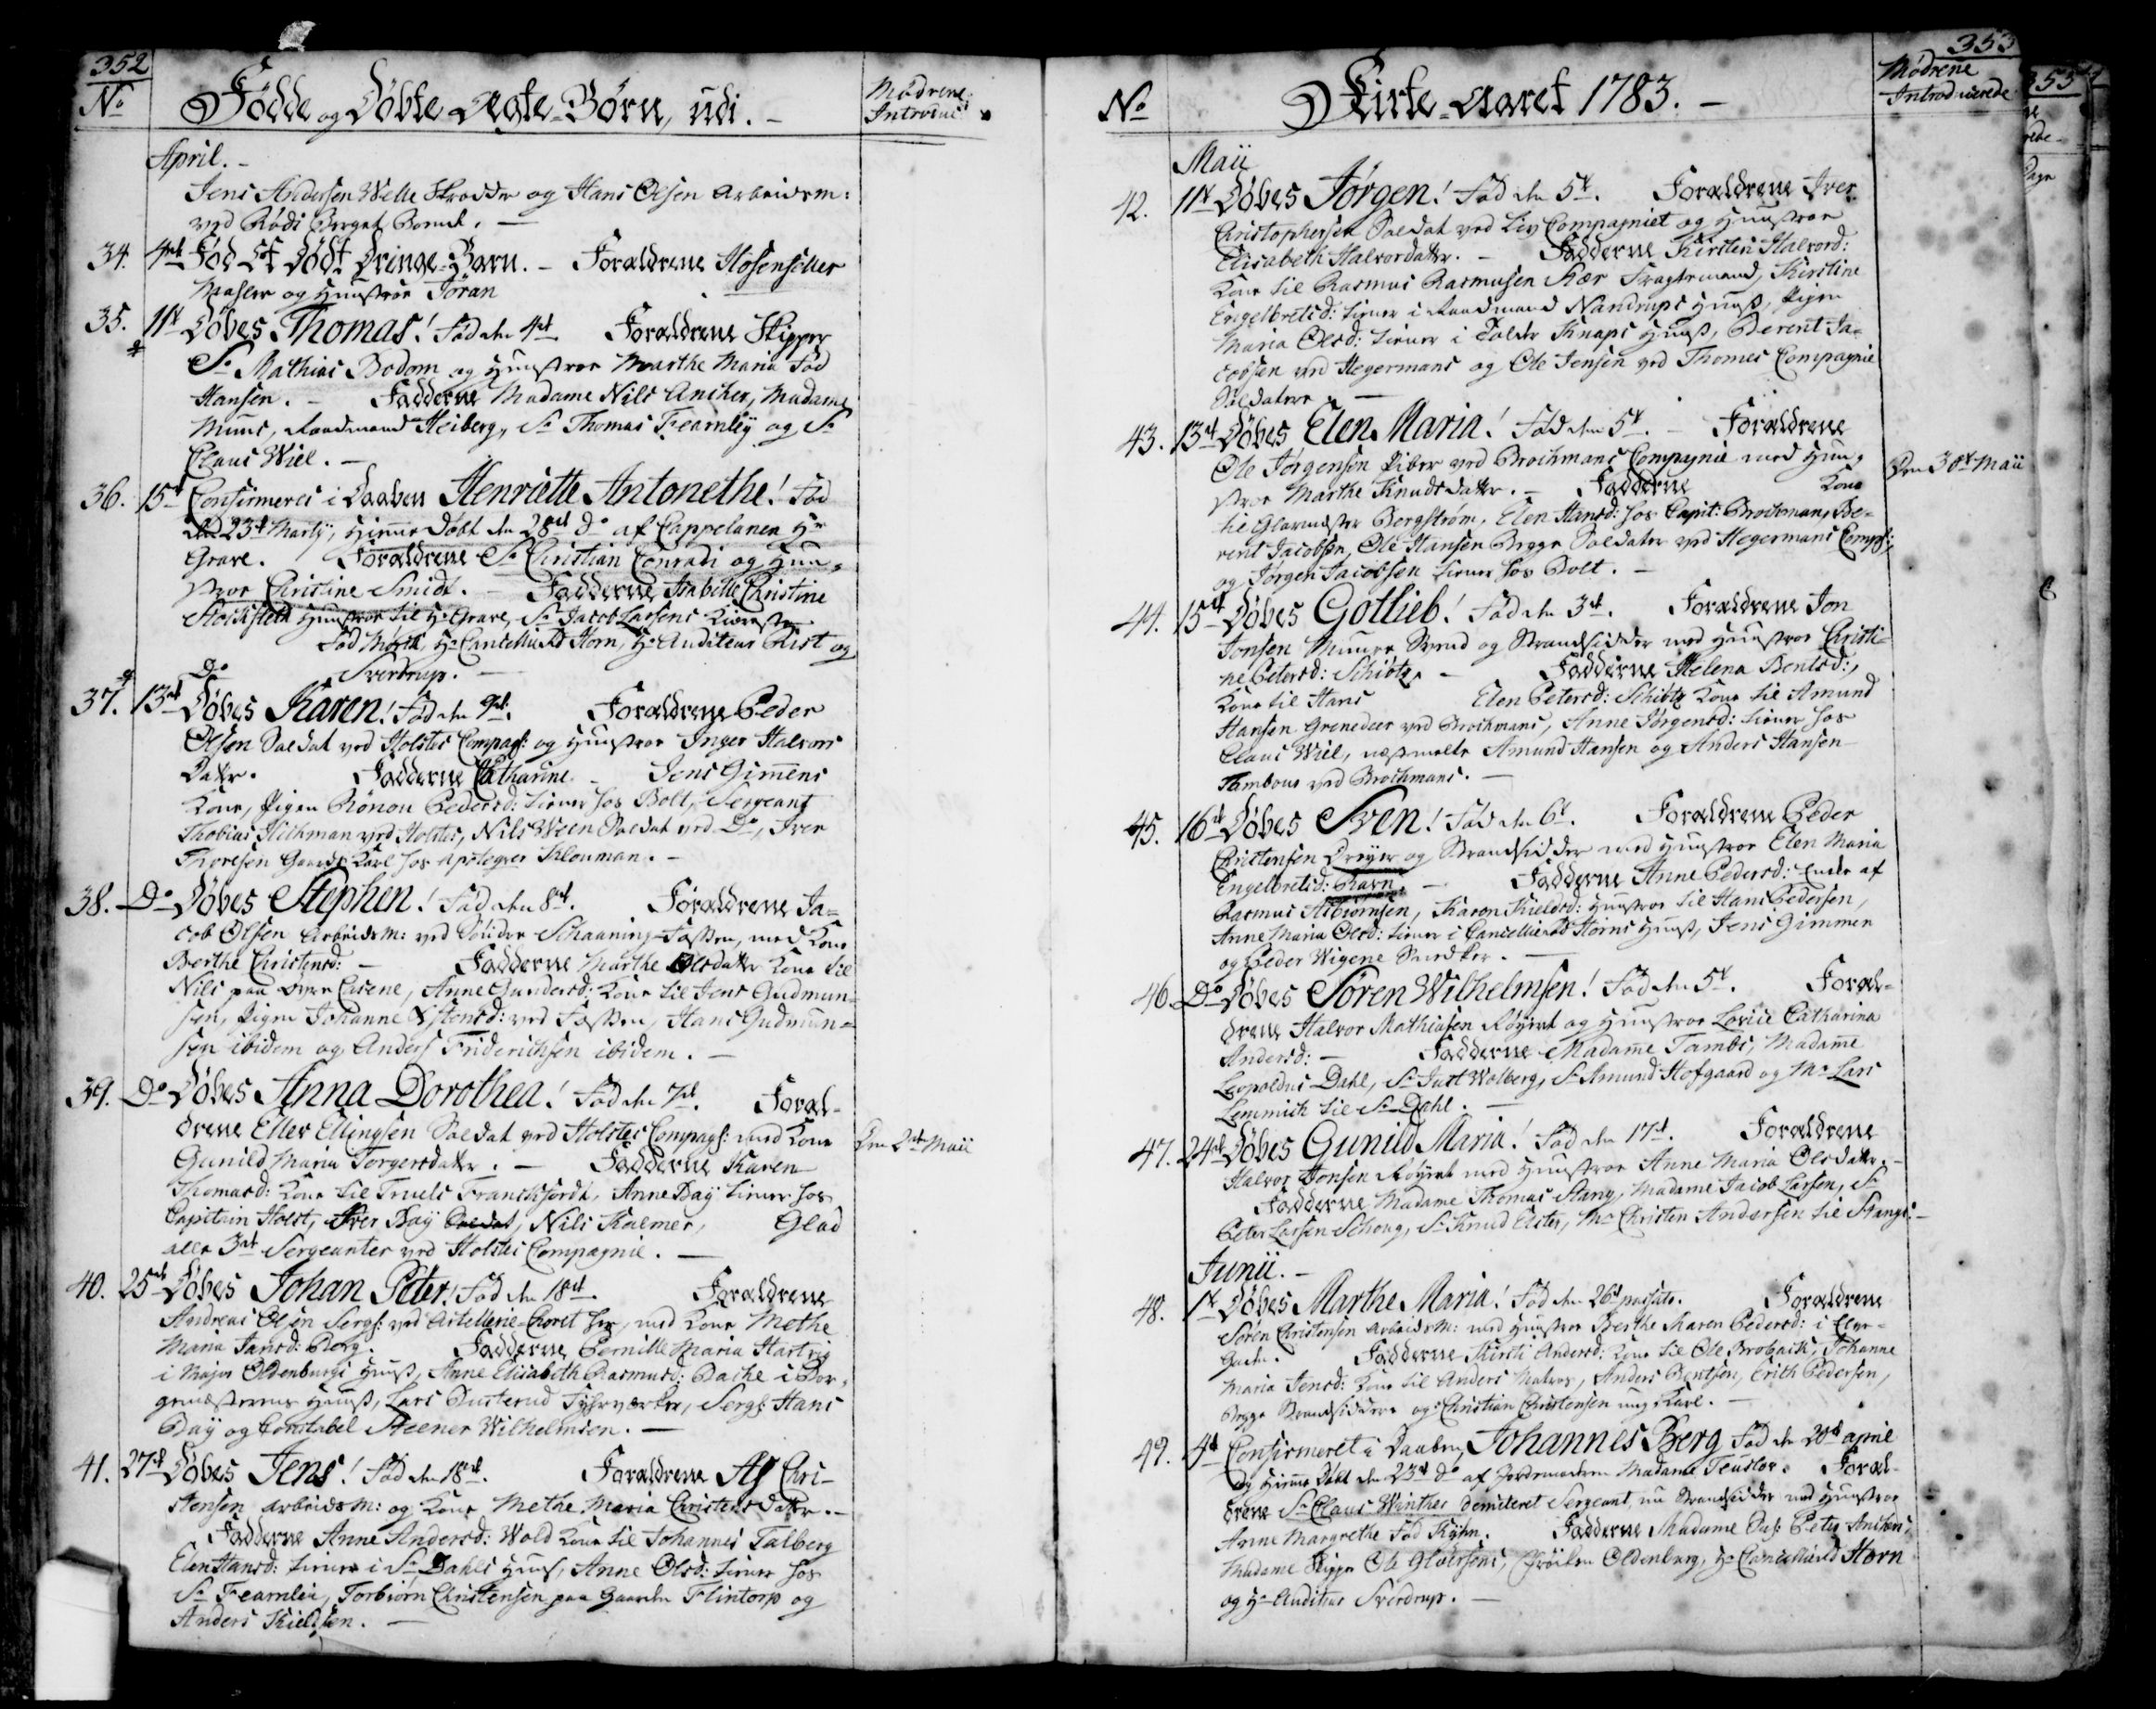 352
No
Fødde og Døbte Ægte-Børn, udi. -
Mødrene
Introduc:
April. -
Jens Andersen Welle Skredder og Hans Olsen Arbeidsm:
ved Røds Berget Bornd. -
34. 4de Fød Et Dødt Dringe-Barn. - Forældrene Hosensiller
Mahler og Hunstroe Jøran
35. 11te Døbes Thomas! Fød den 4de Forældrene Skipper
Sr Mathias Bodom og Hunstroe Marthe Maria Fød
Hansen. - Fadderne Madame Nils Ancher, Madame
Muus, Raadmand Heiberg, Sr Thomas Fearnley og Sr
Claus Wiel. -
36. 15de Confirmeres i Daaben Henriette Antonethe! Fød
den 23de Marty, Hiemme døbt den 28de do af Cappelanen Hr
Grave. Forældrene Sr Christian Conradi og Hun-
stroe Christine Smidt. - Fadderne Isabelle Christine
Stockfleth Hunstroe til Hr Grave, Sr Jacob Larsens Kiæreste
Fød Mørch, Hr Cancellieraad Horn, Hr Auditeur Rist og
Do Sverdrup. -
37. 13de Døbes Karen! Fød den 9de. Forældrene Peder
Olsen Soldat ved Holstes Compags: og Hunstroe Inger Halvors
Datter. Fadderne Catharine - Jens Gimmens
Kone, Pigen Rønou Pedersd: tiener hos Bolt, Sergeant
Thobias Hichman ved Holstes, Nils Ween Soldat ved Do, Iver
Thoresen Gaards Karl hos Apoteqver Klouman. -
38. Do Døbes Stephen! Fød den 8de. Forældrene Ja-
cob Olsen Arbeidsm: ved Schaaning-Fossen, med Kone
Berthe Christensd: - Fadderne Marthe Olsdatter Kone til
Nils paa Øvre Eisene, Anne Gundersd: Kone til Jens Gudmun-
sen, Pigen Johanne Østensd: ved Fossen, Hans Gudmun-
sen ibidem og Anders Friderichsen ibidem. -
39. Do Døbes Anna Dorothea! Fød den 7de. Foræl-
drene Eller Ellingsen Soldat ved Holstes Compags: med Kone
Den 2de Maii
Gunild Maria Torgersdatter. - Fadderne Karen
Thomasd: Kone til Truels Franckfordt, Anne Day tiener hos
Capitain Holst, Iver Day Soldat, Nils Kalmer, Glad
alle 3de Sergeanter ved Holstes Compagnie. -
40. 25de Døbes Johan Peter! Fød den 18de. Forældrene
Andreas Olsen Sergs: ved Artellerie-Choret her, med Kone Methe
Maria Jansd: Berg. Fadderne Pernille Maria Hartvig
i Major Oldenburgs Huus, Anne Elisabeth Rasmusd: Bache i Bor-
gemesterens Huus, Lars Dusterud Fyhrværker, Sergs: Hans
Day og Constabel Steener Wilhelmsen. -
41. 27de Døbes Jens! Fød den 18de. Forældrene As Chri-
stensen Arbeidsm: og Kone Methe Maria Christensdatter. -
Fadderne Anne Andersd: Wold Kone til Johannes Talberg
Elen Hansd: tiener i Sr Dahls Huus, Anne Olsd: tiener hos
Sr Fearnlei, Torbiørn Christensen paa Gaarden Flintorp og
Anders Kieldsen. -
353
No
Kirke-Aaret 1783. -
Mødrene
Introducerede
Maii
42. 11te Døbes Jørgen! Fød den 5te. Forældrene Iver
Christophersen Soldat ved Liv Compagniet og Hunstroe
Elisabeth Halvordatter. - Fadderne Kirsten Halvord:
Kone til Rasmus Rasmusen Kær Fragtemand, Kirstine
Engelbretsd: tiener i Raadmand Nandrups Huus, Pigen
Maria Olsd: tiener i Tolder Knaps Huus, Berent Ja-
cobsen ved Hegermans og Ole Jensen ved Thomes Compagnie
Soldater. -
43. 13de Døbes Elen Maria! Fød den 5te. - Forældrene
Ole Jørgensen Piber ved Brochmans Compagnie med Hun-
Den 30te Maii
stroe Marthe Knudsdatter. - Fadderne Kone
til Glarmester Bergstrøm, Elen Hansd: hos Capit: Brochman, Be-
rent Jacobsen, Ole Hansen Begge Soldater ved Hegermans Comps:,
og Jørgen Jacobsen tiener hos Bolt. -
44. 15de Døbes Gotlieb! Fød den 3de. Forældrene Jon
Jonsen Muurer Svend og Strandsidder med Hunstroe Christi-
ne Petersd: Schiøtz. - Fadderne Helena Bentsd:,
Kone til Hans Elen Petersd: Schiøtz Kone til Amund
Hansen Grenedeer ved Brochmans, Anne Jørgensd: tiener hos
Claus Wiel, næstmelte Amund Hansen og Anders Hansen
Tambour ved Brochmans. -
45. 16de Døbes Sven! Fød den 6te. Forældrene Peder
Christensen Dreyer og Strandsidder med Hunstroe Elen Maria
Engelbretsd: Ravn. - Fadderne Anne Pedersd: Enke af
Rasmus Asbiørnsen, Karen Kieldsd: Hunstroe til Hans Pedersen,
Anne Maria Olsd: tiener i Cancellieraad Horns Huus, Jens Gimmen
og Peder Wigene Snedker. -
46. Do Døbes Søren Wilhelmsen! Fød den 5te. Foræl-
drene Halvor Mathiasen Røyert og Hunstroe Lovise Catharina
Andersd: - Fadderne Madame Tambs, Madame
Leopoldus Dahl, Sr Just Wolberg, Sr Amund Hofgaard og Mr Lars
Lemmich til Sr Dahl. -
47. 24de Døbes Gunild Maria! Fød den 17de. Forældrene
Halvor Jonsen Røyert med Hunstroe Anne Maria Olsdatter. -
Fadderne Madame Thomas Stang, Madame Jacob Larsen, Sr
Peter Larsen Schoug, Sr Knud Elster, Mr Christen Andersen til Stangs. -
Junii. -
48. 1te Døbes Marthe Maria! Fød den 26de passato. Forældrene
Søren Christensen Arbeidsm: med Hunstroe Berthe Karen Pedersd: i Elve-
Gaden. Fadderne Kirsti Andersd: Kone til Ole Brobach, Johanne
Maria Jensd: Kone til Anders Matros, Anders Bentsen, Erich Pedersen,
Begge Strandsiddere og Christian Christensen ung Karl. -
49. 4de Confirmeret i Daaben Johannes Berg Fød den 20de April
og Hiemme døbt den 23de do af Jordemoderen Madame Teustler. Foræl-
drene Sr Claus Winther Demitteret Sergeant, nu Strandsidder med Hunstroe
Anne Margrethe Fød Kyhn. Fadderne Madame Peter Anchers,
Madame Skipper Ole Gloersens, Frøiken Oldenburg, Hr Cancellieraad Horn
og Hr Auditeur Sverdrup. -